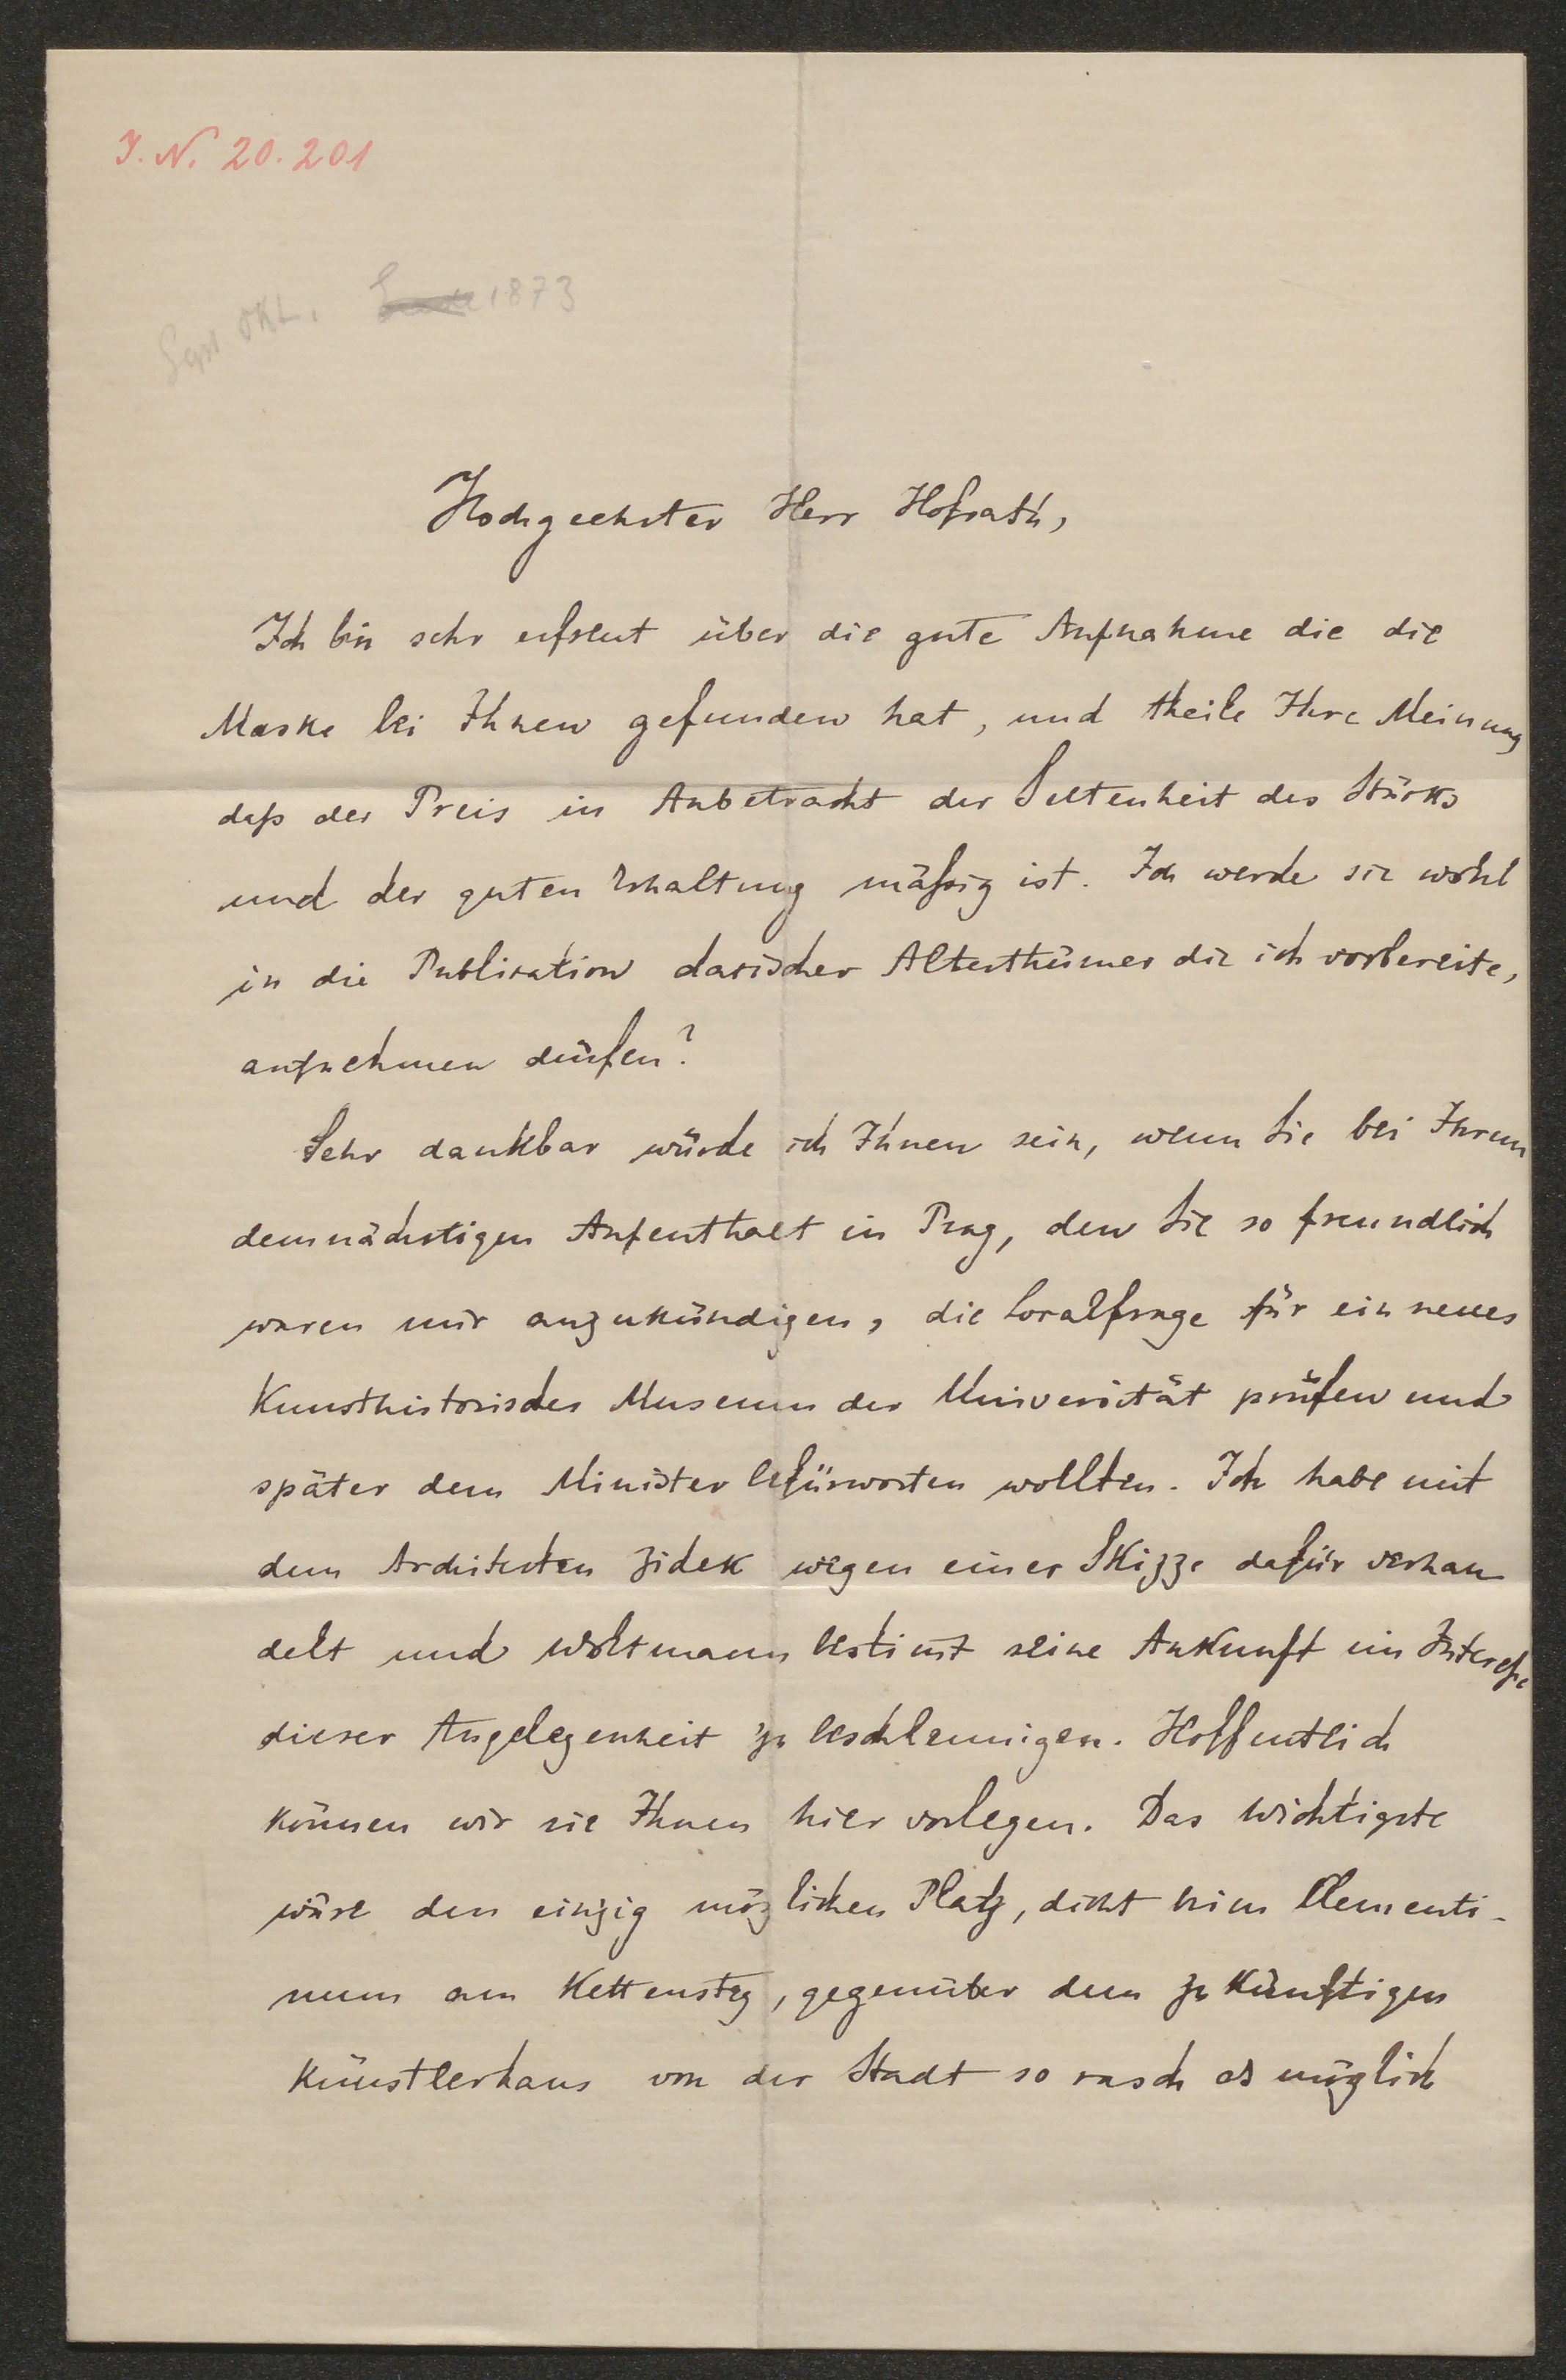 I. N. 20.201
Sept Okt. 1873
Hochgeehrter Herr Hofrath,
Ich bin sehr erfreut über die gute Aufnahme die die
Maske bei Ihnen gefunden hat, und theile Ihre Meinung
daß der Preis in Anbetracht der Seltenheit des Stücks
und der guten Erhaltung mäßig ist. Ich werde sie wohl
in die Publication dacischer Alterthümer die ich vorbereite,
aufnehmen dürfen?
Sehr dankbar würde ich Ihnen sein, wenn Sie bei Ihrem
demnächstigen Aufenthalt in Prag, den Sie so freundlich
waren mir anzukündigen, die Localfrage für ein neues
Kunsthistorisches Museum der Universität prüfen und
später dem Minister befürworten wollten. Ich habe mit
dem Architecten Zidek wegen einer Skizze dafür verhan
delt und Woltmann bestimt seine Ankunft im Interesse
dieser Angelegenheit zu beschleunigen. Hoffentlich
können wir sie Ihnen hier vorlegen. Das Wichtigste
wäre den einzig möglichen Platz, dicht beim Clementi-
num am Kettensteg, gegenüber dem zukünftigen
Künstlerhaus von der Stadt so rasch als möglich